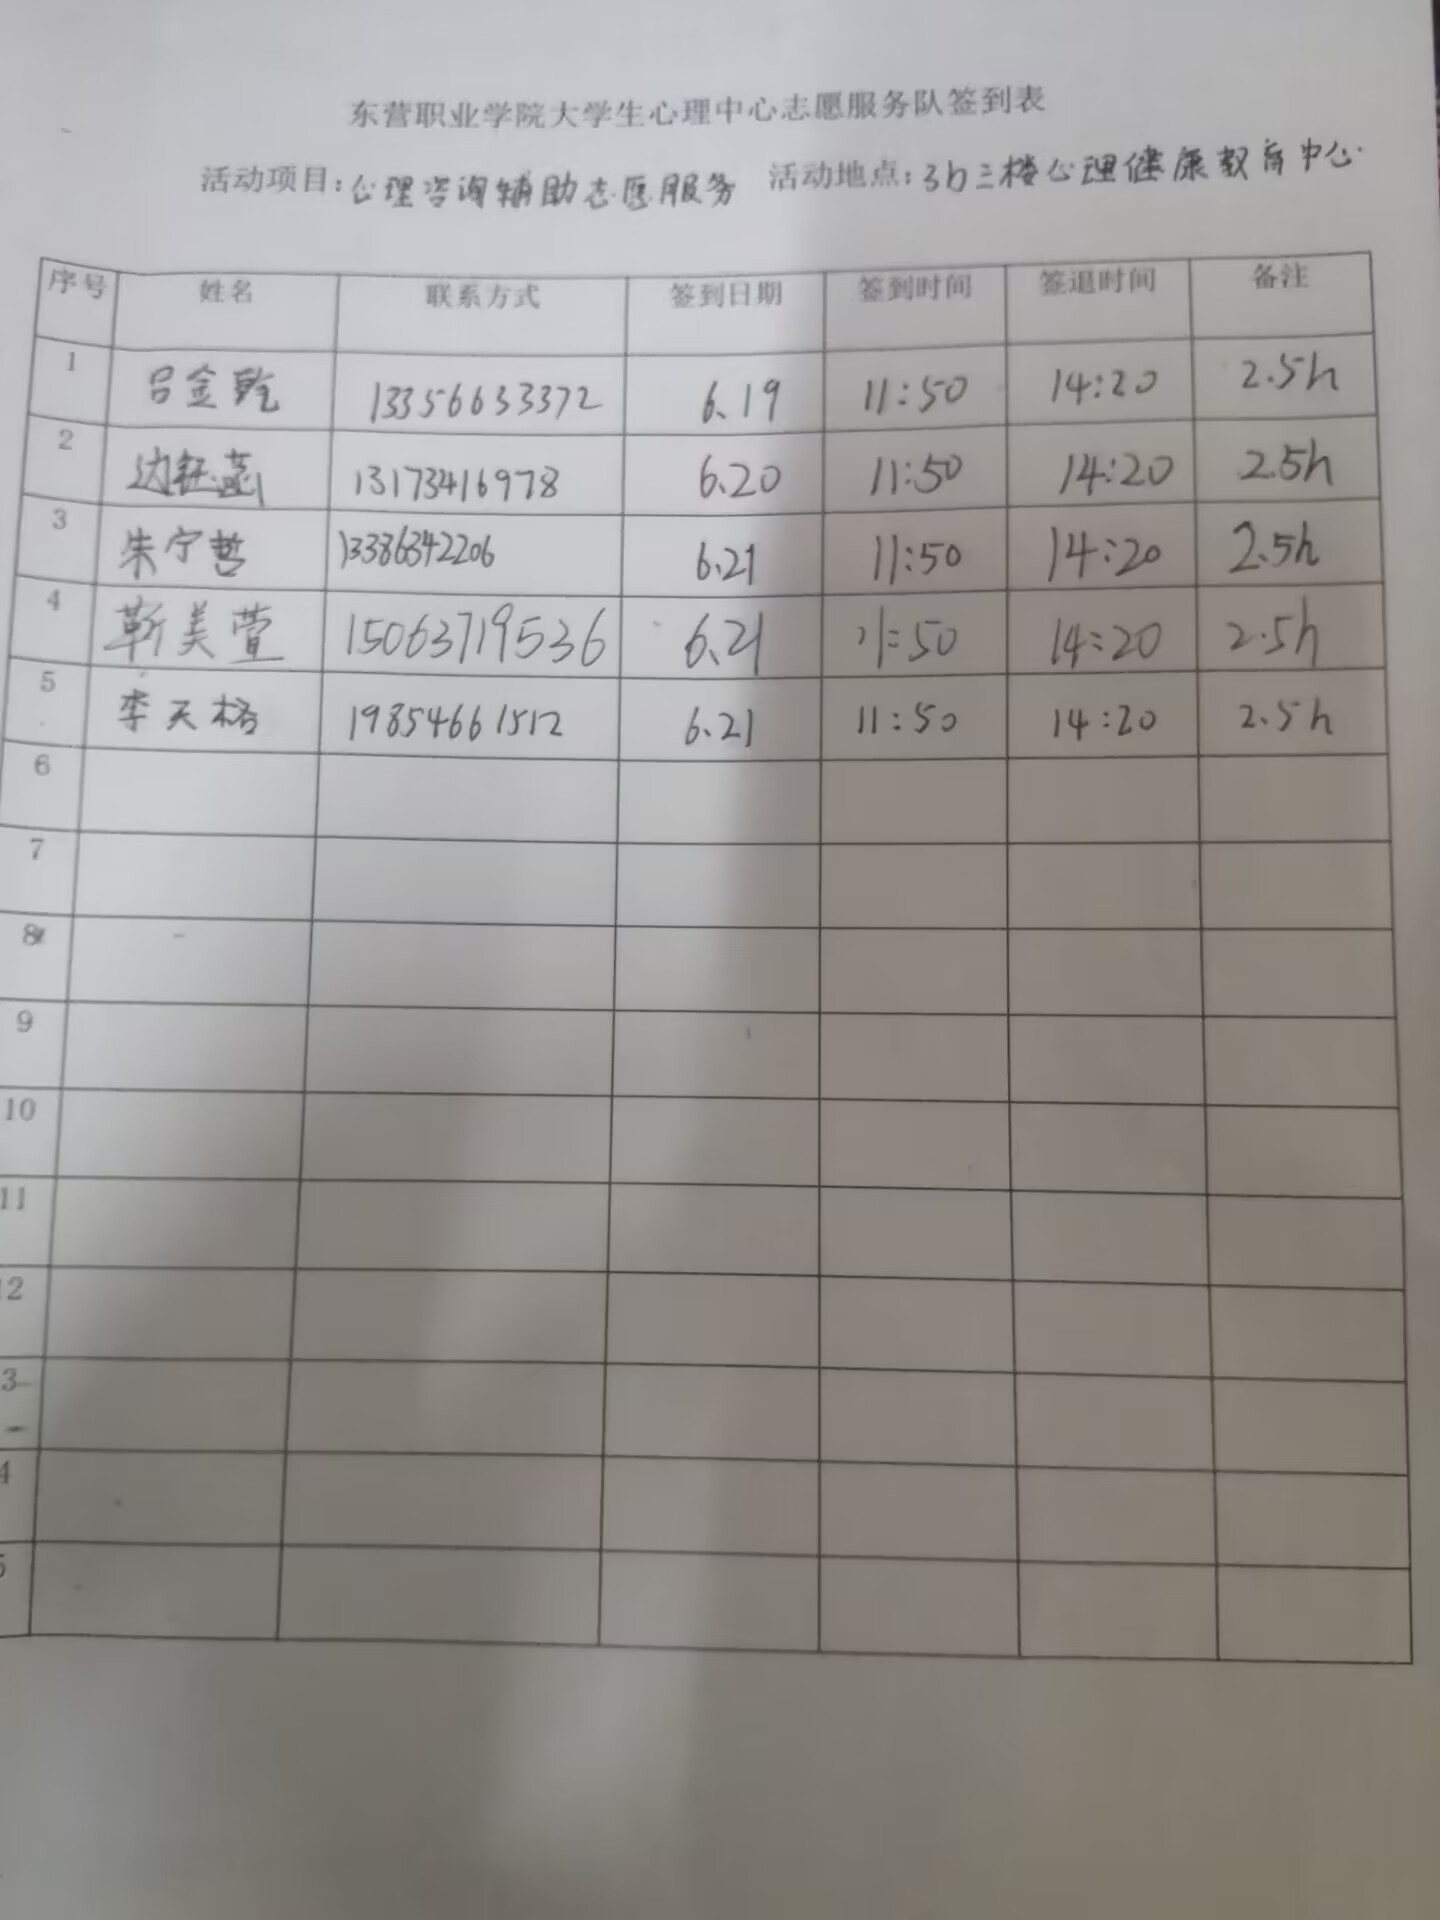 东营职业学院大学生心理中心志愿服务队签到表
活动项目：心理咨询辅助志愿服务 活动地点：3b三楼心理健康教育中心
序号 姓名 联系方式 签到日期 签到时间 签退时间 备注
1 吕金乾 13356633372 6.19 11:50 14:20 2.5h
2 边钰涵 13173416978 6.20 11:50 14:20 2.5h
3 朱宁哲 13386342206 6.21 11:50 14:20 2.5h
4 靳美萱 15063719536 6.21 11:50 14:20 2.5h
5 李天格 19854661512 6.21 11:50 14:20 2.5h
6
7
8
9
10
11
12
3
4
5